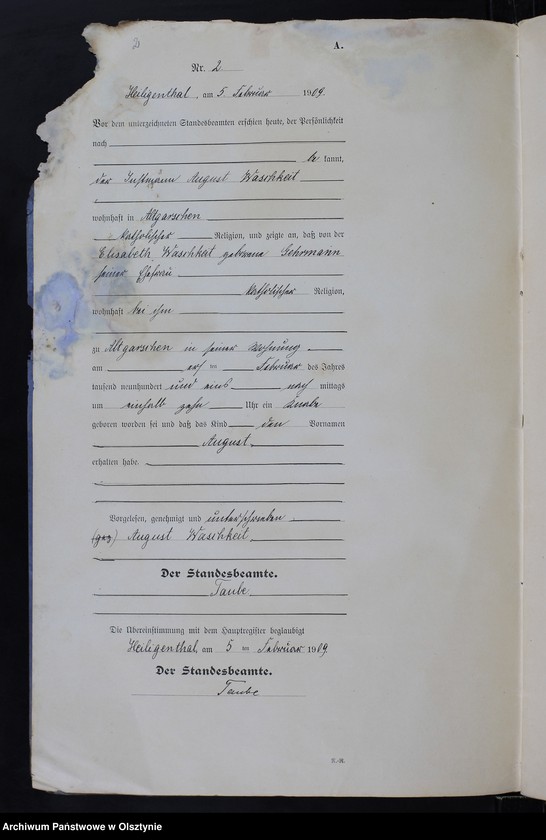 A.
Nr. 2
Heiligenthal, am 5 Februar 1909.
Vor dem unterzeichneten Standesbeamten erschien heute, der Persönlichkeit
nach
be kannt,
der Instmann August Waschkeit
wohnhaft in Altgarschen
katholischer Religion, und zeigte an, daß von der
Elisabeth Waschkeit geborene Gehrmann
seiner Ehefrau
katholischer Religion,
wohnhaft bei ihm
zu Altgarschen in seiner Wohnung
am ersten Februar des Jahres
tausend neunhundert und nach mittags
um einhalb zehn Uhr ein Knabe
geboren worden sei und daß das Kind den Vornamen
August
erhalten habe.
Vorgelesen, genehmigt und unterschrieben
(gez) August Waschkeit
Der Standesbeamte.
Taube
Die Übereinstimmung mit dem Hauptregister beglaubigt
Heiligenthal, am 5 ten Februar 1909.
Der Standesbeamte.
Taube
Archiwum Państwowe w Olsztynie